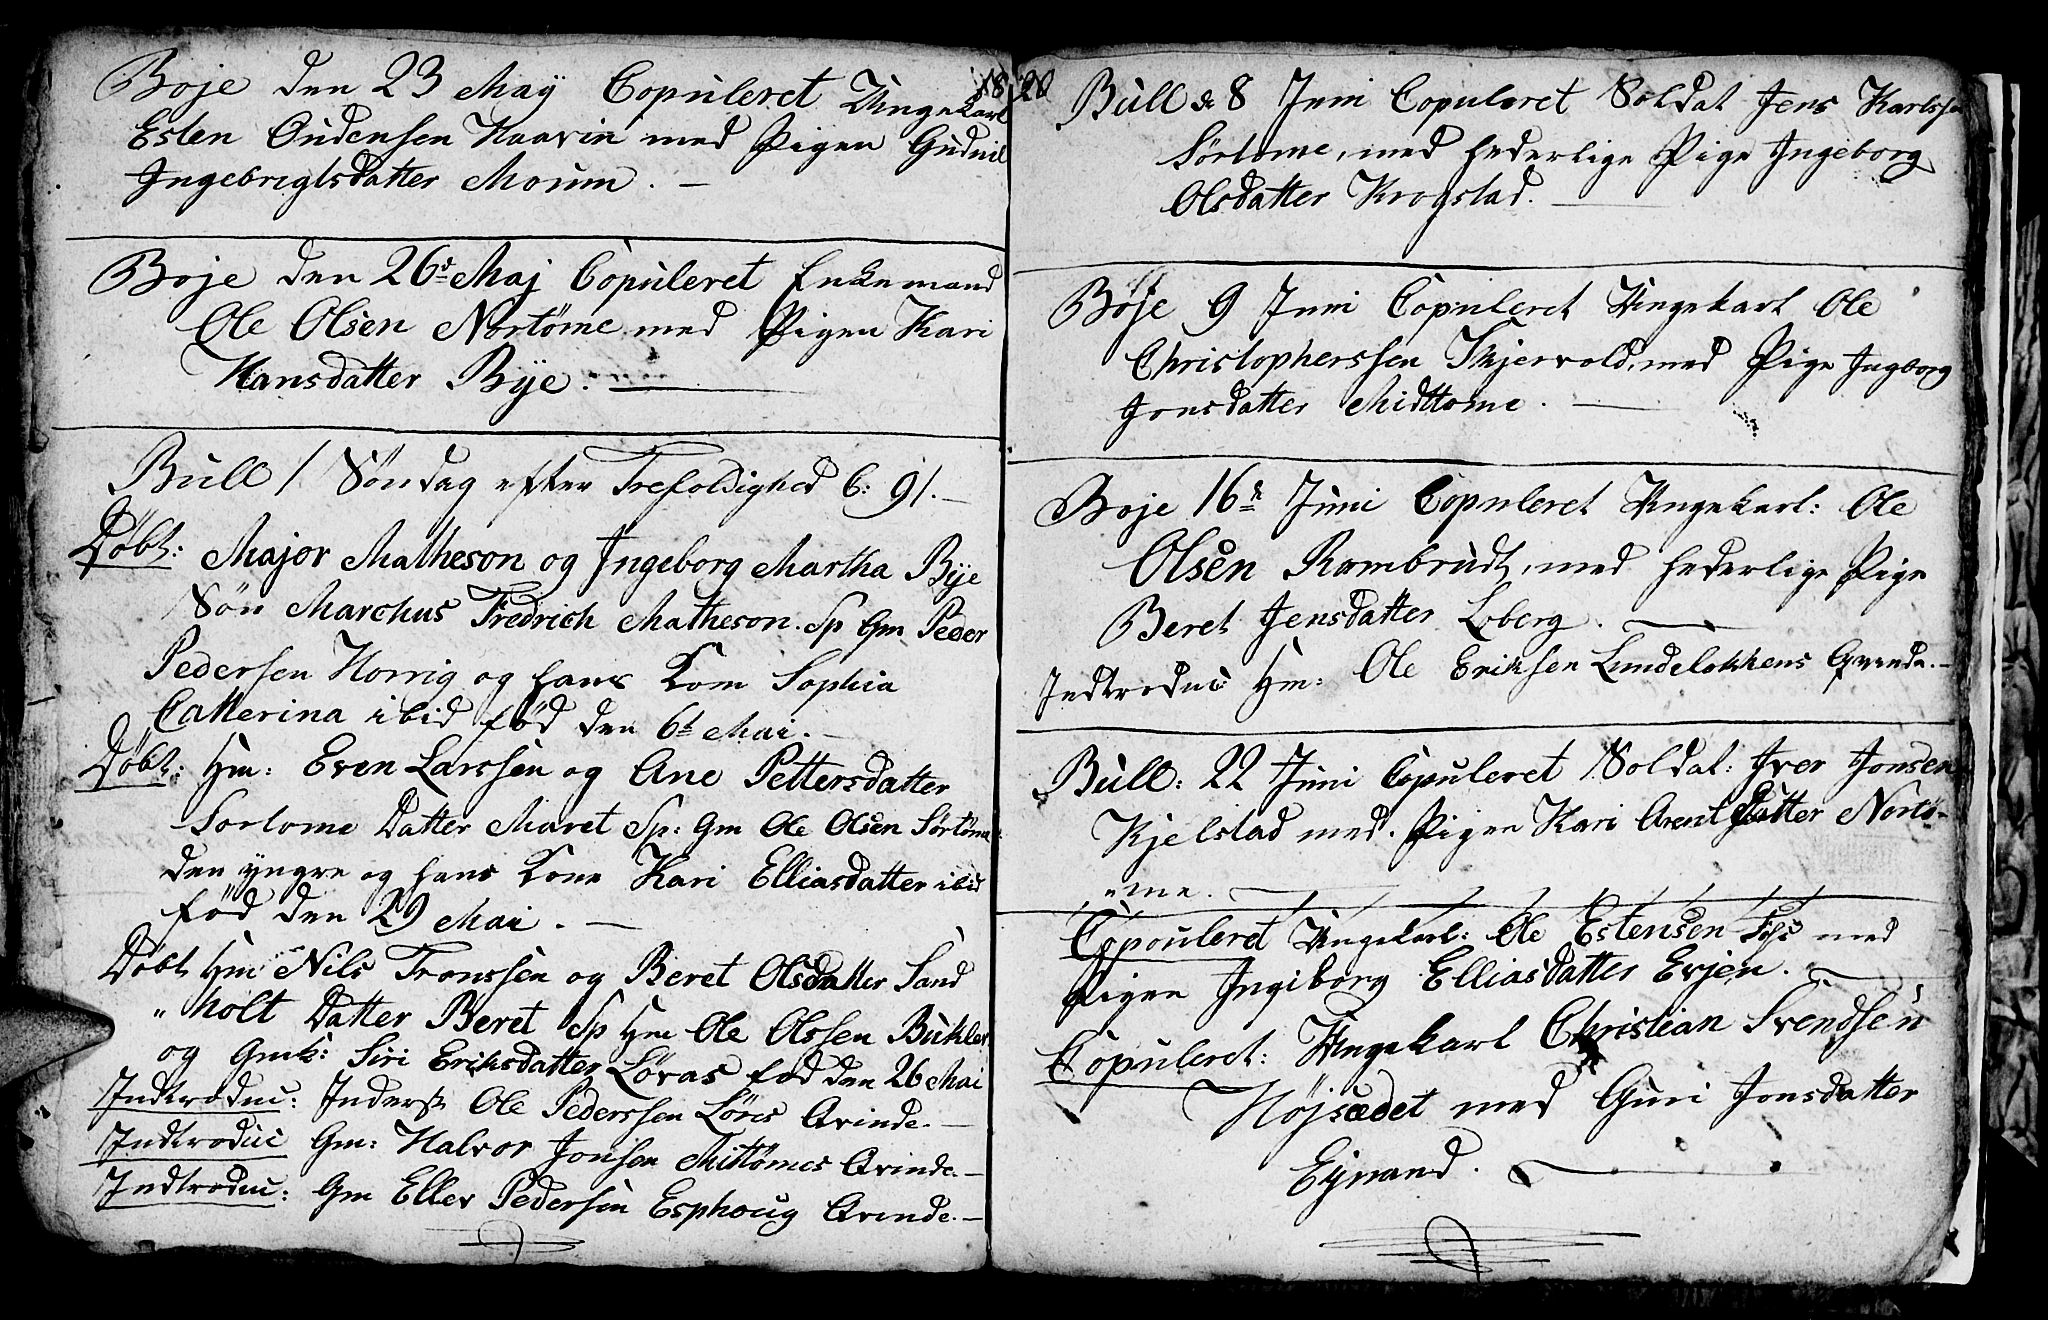 Boje den 23 Maÿ Copuleret Ungekarl
Esten Oudensen Haavin med Pigen Gudnil
Ingebregtsdatter Moum. –
Boje den 26de Maj Copuleret Enkemand
Ole Olsen Nortøme med Pigen Kari
Hansdatter Bye. –
Bull 1 Søndag efter Trefoldighed 6: 91. –
Døbt: Major Matheson og Ingeborg Martha Bye
Søn Marchus Fredrich Matheson. Sp Gm Peder
Pedersen Horrig og hans Kom Sophia
Catterina ibid fød den 6t Mai. –
Døbt: Hm: Even Larssen og Ane Pettersdatter
Sortome Datter Maret Sp: Gm Ole Olsen Sørtøme
den yngre og hans Kone Kari Elliasdatter ibid
fød den 29 Mai. –
Døbt Hm Nils Tronssen og Beret Olsdatter Sand
" holt Datter Beret Sp Hm Ole Olssen Bukler
og Gmk: Siri Eriksdatter Løvas fød den 26 Mai
Indtroduc: Inderst Ole Pederssen Løres Qvinde. –
Indtroduc Gm: Halvor Jonsen Mittømes Qvinde. –
Indtroduc: Gm Ellev Pedersen Esphoug Qvinde. –
18
20
Bull d 8 Juni Copuleret Soldat Jens Karlssen
Sørtome, med hederlige Pige Ingeborg
Olsdatter Krogstad. –
Boje 9 Juni Copuleret Ungekarl Ole
Christopherssen Skjervold, med Pige Ingborg
Jonsdatter Midttome. –
Boje 16de Juni Copuleret Ungekarl: Ole
Olsen Rombrudt, med hederlige Pige
Beret Jensdatter Loberg. –
Indtroduc Hm: Ole Eriksen Lundeløkkens Qvinde. –
Bull: 22 Juni Copuleret Soldat: Iver Jonsen
Kjelstad med. Pigen Kari Arentsdatter Nortø-
"me. –
Copouleret Ungekarl: Ole Estensen Fos med
Pigen Ingiborg Elliasdatter Evjen. –
Copuleret: Ungekarl Christian Svendsen
Højsædet med Guri Jonsdatter
Eynand. –